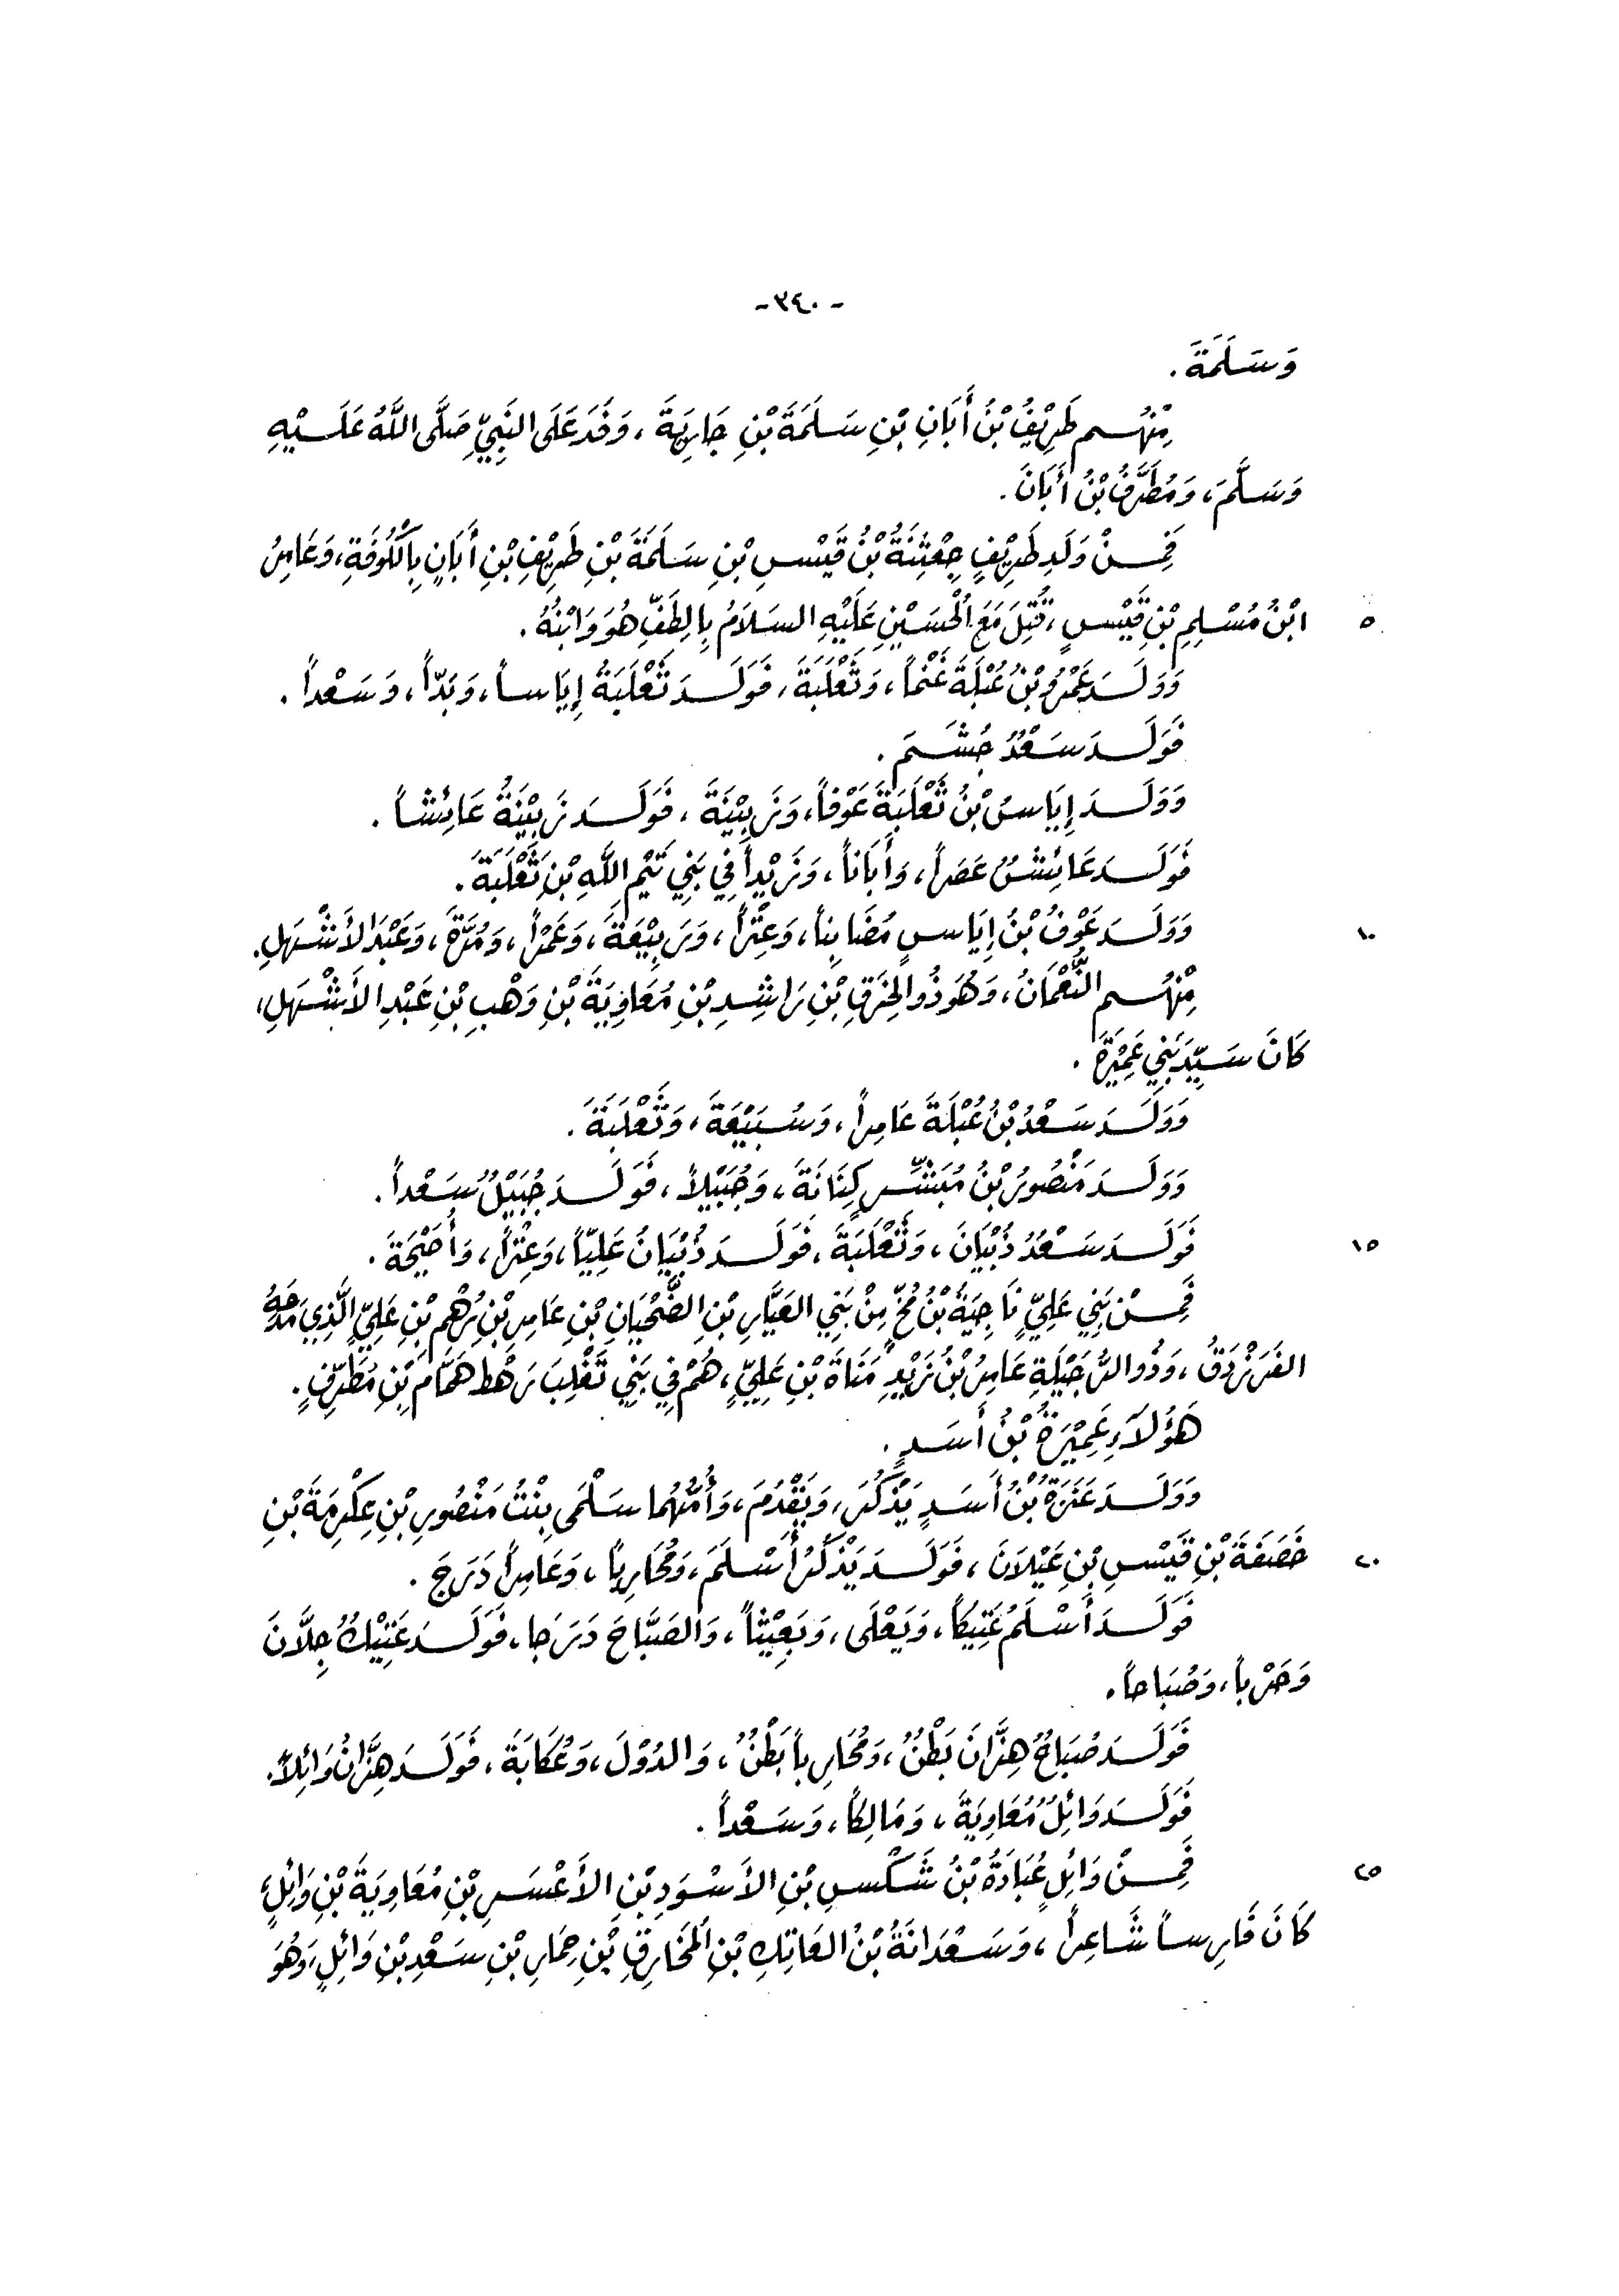 - ٣٤٠ -
وَسَلَمَةَ .
مِنْهُم طَرِيْفُ بْنُ أَبَانِ بْنِ سَلَمَةَ بْنِ جَارِيَةَ ، وَفَدَ عَلَى النَّبِيِّ صَلَّى اللَّهُ عَلَيْهِ
وَسَلَّمَ، وَمُطَرَّفُ بْنُ أَبَانَ .
فَمِنْ وَلَدِ طَرِيْفٍ جِعْثِنَةُ بْنُ قَيْسِ بْنِ سَلَمَةَ بْنِ طَرِيْفِ بْنِ أَبَانٍ بِالْكُوفَةِ، وَعَامِرُ
٥ ابْنُ مُسْلِمِ بْنِ قَيْسٍ ، قُتِلَ مَعَ الْحُسَيْنِ عَلَيْهِ السَلَامُ بِالطَفِّ هُوَ وَابْنُهُ .
وَوَلَدَ عَمْرُو بْنُ عُبْلَةَ غَنْمَاً ، وَثَعْلَبَةَ ، فَوَلَدَ ثَعْلَبَةُ إِيَاساً ، وَبَدّاً ، وَسَعْداً .
فَوَلَدَ سَعْدُ جُشَمَ .
وَوَلَدَ إِيَاسُ بْنُ ثَعْلَبَةَ عَوْفاً، وَزَبِيْنَةَ ، فَوَلَدَ زَبِيْنَةُ عَائِشاً .
فَوَلَدَ عَائِشُ عَصَراً ، وَأَبَاناً ، وَزَيْداً فِي بَنِي تَيْمِ اللَّهِ بْنِ ثَعْلَبَةَ .
١٠ وَوَلَدَ عَوْفُ بْنُ إِيَاسٍ مُضَابِناً ، وَعِتْراً ، وَرَبِيْعَةَ ، وَعَمْراً ، وَمُرَّةَ ، وَعَبْدَ الأَشْهَلِ .
مِنْهُم النُّعْمَانُ ، وَهُوَ ذُو الخِرَقِ بْنِ رَاشِدِ بْنِ مُعَاوِيَةَ بْنِ وَهْبِ بْنِ عَبْدِ الأَشْهَلِ ،
كَانَ سَيِّدَ بَنِي عَمِيْرَةَ .
وَوَلَدَ سَعْدُ بْنُ عُبْلَةَ عَامِراً ، وَسُبَيْعَةَ ، وَثَعْلَبَةَ .
وَوَلَدَ مَنْصُورُ بْنُ مُبَشِّرٍ كِنَانَةَ ، وَجُبَيْلاً ، فَوَلَدَ جُبَيْلُ سَعْداً .
١٥ فَوَلَدَ سَعْدُ ذُبْيَانَ ، وَثَعْلَبَةَ ، فَوَلَدَ ذُبْيَانُ عَلِيّاً ، وَعِتْراً ، وَأُحَيْحَةَ .
فَمِنْ بَنِي عَلِيٍّ نَاجِيَةُ بْنُ مُخٍّ مِنْ بَنِي العَيَّارِ بْنِ الضَّحْيَانِ بْنِ عَامِرِ بْنِ رُهْمِ بْنِ عَلِيٍّ الَّذِي مَدَحَهُ
الفَرَزْدَقُ ، وَذُو الرُّجَيْلَةِ عَامِرُ بْنُ زَيْدِ مَنَاةَ بْنِ عَلِيٍّ ، هُمْ فِي بَنِي تَغْلِبَ رَهْط هَمَّامِ بْنِ مُطَرِّفٍ .
هَؤُلَاءِ عَمِيْرَةُ بْنُ أَسَدٍ .
وَوَلَدَ عَنَزَةُ بْنُ أَسَدٍ يَذْكُرَ ، وَيَقْدُمَ ، وَأُمُّهُما سَلْمَى بِنْتُ مَنْصُورِ بْنِ عِكْرِمَةَ بْنِ
٢٠ خَصَفَةَ بْنِ قَيْسِ بْنِ عَيْلَانَ ، فَوَلَدَ يَذْكُرُ أَسْلَمَ ، وَمُحَارِباً ، وَعَامِراً دَرَجَ .
فَوَلَدَ أَسْلَمُ عَتِيْكاً ، وَيَعْلَى ، وَبَعِيْثاً ، وَالصَبَّاحَ دَرَجا ، فَوَلَدَ عَتِيْكُ جِلَّانَ
وَحَرْباً ، وَصُبَاحاً .
فَوَلَدَ صُبَاحُ هِزَّانَ بَطْنُ ، وَمُحَارِباً بَطْنُ ، وَالدُوْلَ ، وَعُكَابَةَ ، فَوَلَدَ هِزَّانُ وَائِلاً .
فَوَلَدَ وَائِلُ مُعَاوِيَةَ ، وَمَالِكاً ، وَسَعْداً .
٢٥ فَمِنْ وَائِلٍ عُبَادَةُ بْنُ شَكْسِ بْنِ الأَسْوَدِ بْنِ الأَعْسَرِ بْنِ مُعَاوِيَةَ بْنِ وَائِلٍ ،
كَانَ فَارِساً شَاعِراً ، وَسَعْدَانَةُ بْنُ العَاتِكِ بْنِ المُخَارِقِ بْنِ حِمَارِ بْنِ سَعْدِ بْنِ وَائِلٍ ، وَهُوَ